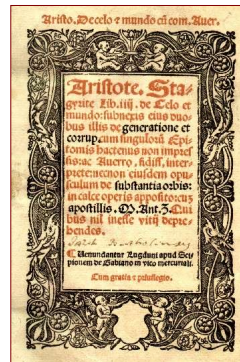 Aristo. De celo ⁊ mundo cū com. Auer.
Aristote. Sta-
gyrite Lib. iiij. de Celo et
mundo: subnexis eius duo-
bus illis de generatione et
corrup. cum singulorū Epi-
tomis hactenus non impres-
sis: ac Auerro, fidiss. inter-
prete: necnon eiusdem opu-
sculum de substantia orbis:
in calce operis apposito: cuz
apostillis. M. Ant. Z. Cui
bus nil inesse vitij depre-
hendes.
Uenundantur Lugduni apud Sci-
pionem de Gabiano in vico mercuriali.
Cum gratia ⁊ priuilegio.